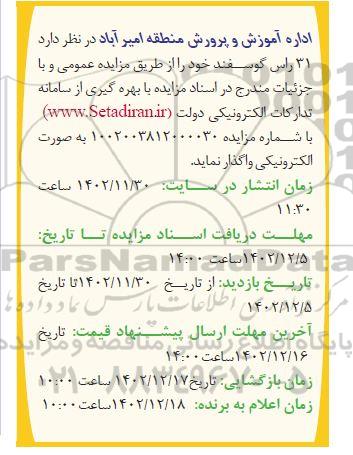 اداره آموزش و پرورش منطقه امیر آباد در نظر دارد
۳۱ راس گوسفند خود را از طریق مزایده عمومی و با
جزئیات مندرج در اسناد مزایده با بهره گیری از سامانه
تدارکات الکترونیکی دولت (www.Setadiran.ir)
با شماره مزایده ۱۰۰۲۰۰۳۸۱۲۰۰۰۰۳۰ به صورت
الکترونیکی واگذار نماید.
زمان انتشار در سایت: ۱۴۰۲/۱۱/۳۰ ساعت
۱۱:۳۰
مهلت دریافت اسناد مزایده تا تاریخ:
۱۴۰۲/۱۲/۵ساعت ۱۴:۰۰
تاریخ بازدید: از تاریخ ۱۴۰۲/۱۱/۳۰تا تاریخ
۱۴۰۲/۱۲/۵
آخرین مهلت ارسال پیشنهاد قیمت: تاریخ
۱۴۰۲/۱۲/۱۶ساعت۱۴:۰۰
زمان بازگشایی: تاریخ۱۴۰۲/۱۲/۱۷ ساعت ۱۰:۰۰
زمان اعلام به برنده: ۱۴۰۲/۱۲/۱۸ساعت۱۰:۰۰
ParsNamadData